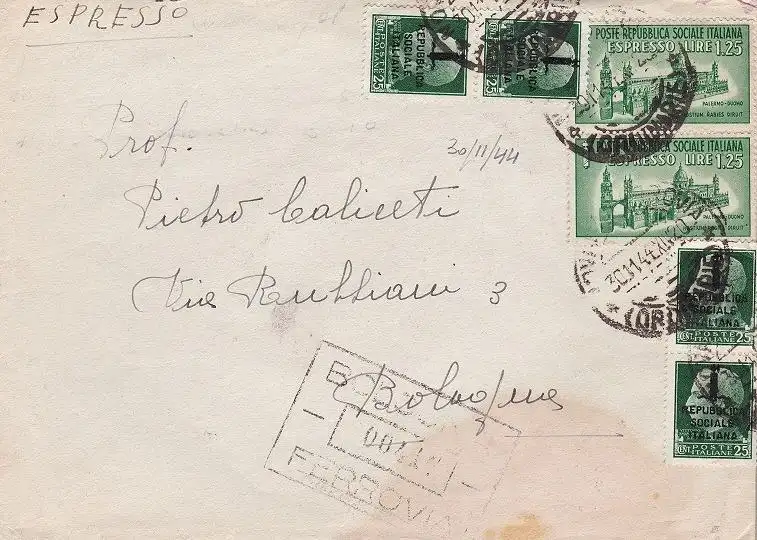 ESPRESSO
REPUBBLICA
SOCIALE
ITALIANA
POSTE ITALIANE
CENT. 25
REPUBBLICA
SOCIALE
ITALIANA
POSTE ITALIANE
CENT. 25
POSTE REPUBBLICA SOCIALE ITALIANA
ESPRESSO LIRE 1,25
PALERMO-DUOMO
HOSTIUM RABIES DIRUIT
POSTE REPUBBLICA SOCIALE ITALIANA
ESPRESSO LIRE 1,25
PALERMO-DUOMO
HOSTIUM RABIES DIRUIT
30.11.44
Prof.
30/11/44
Pietro Caliceti
Via 3
Bologna
REPUBBLICA
SOCIALE
ITALIANA
POSTE ITALIANE
CENT. 25
REPUBBLICA
SOCIALE
ITALIANA
POSTE ITALIANE
CENT. 25
FERROVIA